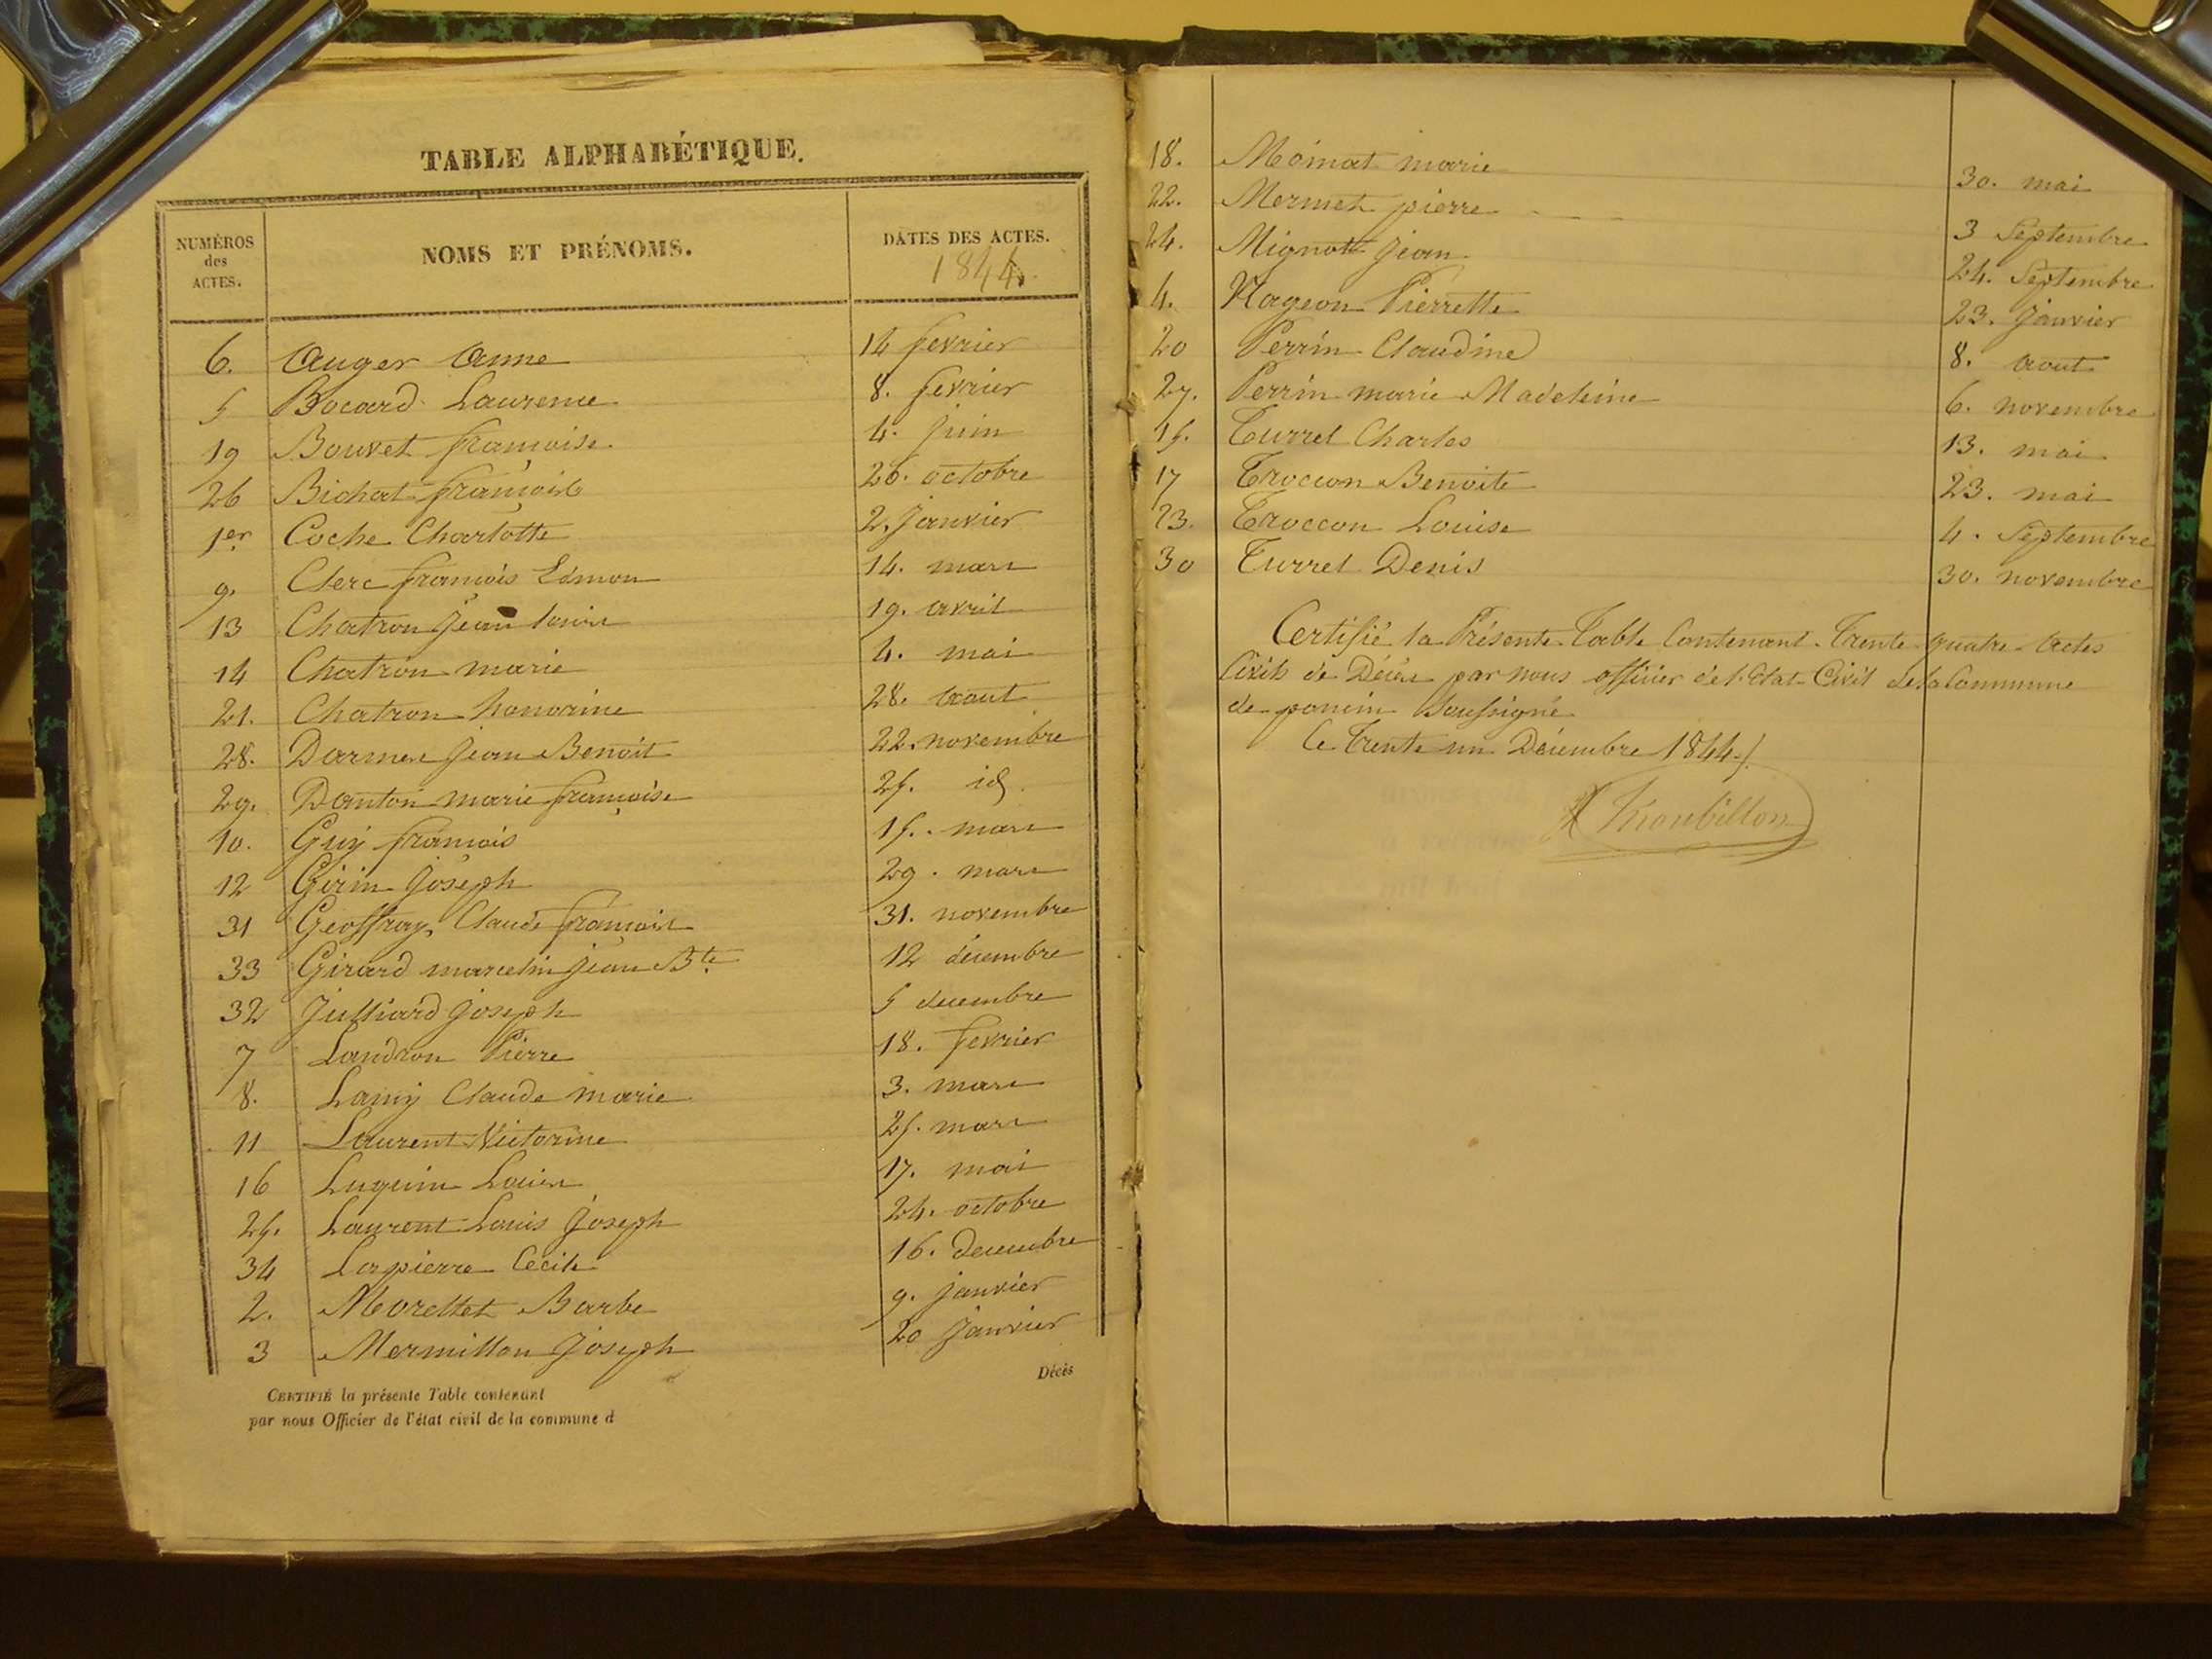 TABLE ALPHABÉTIQUE.
NUMÉROS des ACTES. NOMS ET PRÉNOMS. DATES DES ACTES.
1844.
6. Auger Anne 14 fevrier
5 Bocard Laurence 8. fevrier
19 Bouvet françoise 4. juin
26 Bichat françoise 26. octobre
1er Coche Charlotte 2. Janvier
9. Clerc françois Edmon 14. mars
13 Chatron Jean Louis 19. avril
14 Chatron marie 4. mai
21. Chatron honorine 28. aout
28. Darmes Jean Benoit 22. novembre
29. Danton marie françoise 25. id.
10. Guy françois 15. mars
12 Girin Joseph 29. mars
31 Geoffray Claude françois 31. novembre
33 Girard marcelin Jean Bte 12 decembre
32 Julliard Joseph 5 decembre
7 Landron Pierre 18. fevrier
8. Lamy Claude marie 3. mars
11 Laurent Victorine 25. mars
16 Luquin Louis 17. mai
25. Laurent Louis Joseph 24. octobre
34 Lapierre Cecile 16. decembre
2. Morellet Barbe 9. janvier
3 Mermillon Joseph 20 Janvier
Décès
CERTIFIÉ la présente Table contenant
par nous Officier de l'état civil de la commune d
18. Moinat marie 30. mai
22. Mermet pierre 3 Septembre
24. Mignot Jean 24. Septembre
4. Nageon Pierrette 23. Janvier
20 Perrin Claudine 8. aout
27. Perrin marie Madeleine 6. novembre
15. Turrel Charles 13. mai
17 Troccon Benoite 23. mai
23. Troccon Louise 4. Septembre
30 Turrel Denis 30. novembre
Certifié la Présente Table Contenant Trente quatre actes
Civils de Décès par nous officier de l'Etat Civil de la Commune
de poncin Soussigné
Ce Trente un Décembre 1844